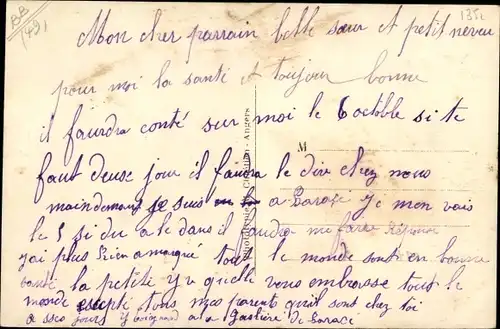 BB
1491
1352
Mon cher parrain belle sœur et petit neveu
pour moi la santé et toujour bonne
il faurdra conté sur moi le 6 octobre si te
faut deuse jour il faudra le dire chez nous
M
maindemant je suis a Larasé je men vais
le 5 si du a le dans il faudra me faire Réponse
jai plus Rien a marqué tout le monde sont en bonne
santé la petite yvquelle vous embrasse tout le
monde escepté tous mes parents quil sont chez toi
a sseo jours a la Gaslière de Larasé
Phototypie Angers